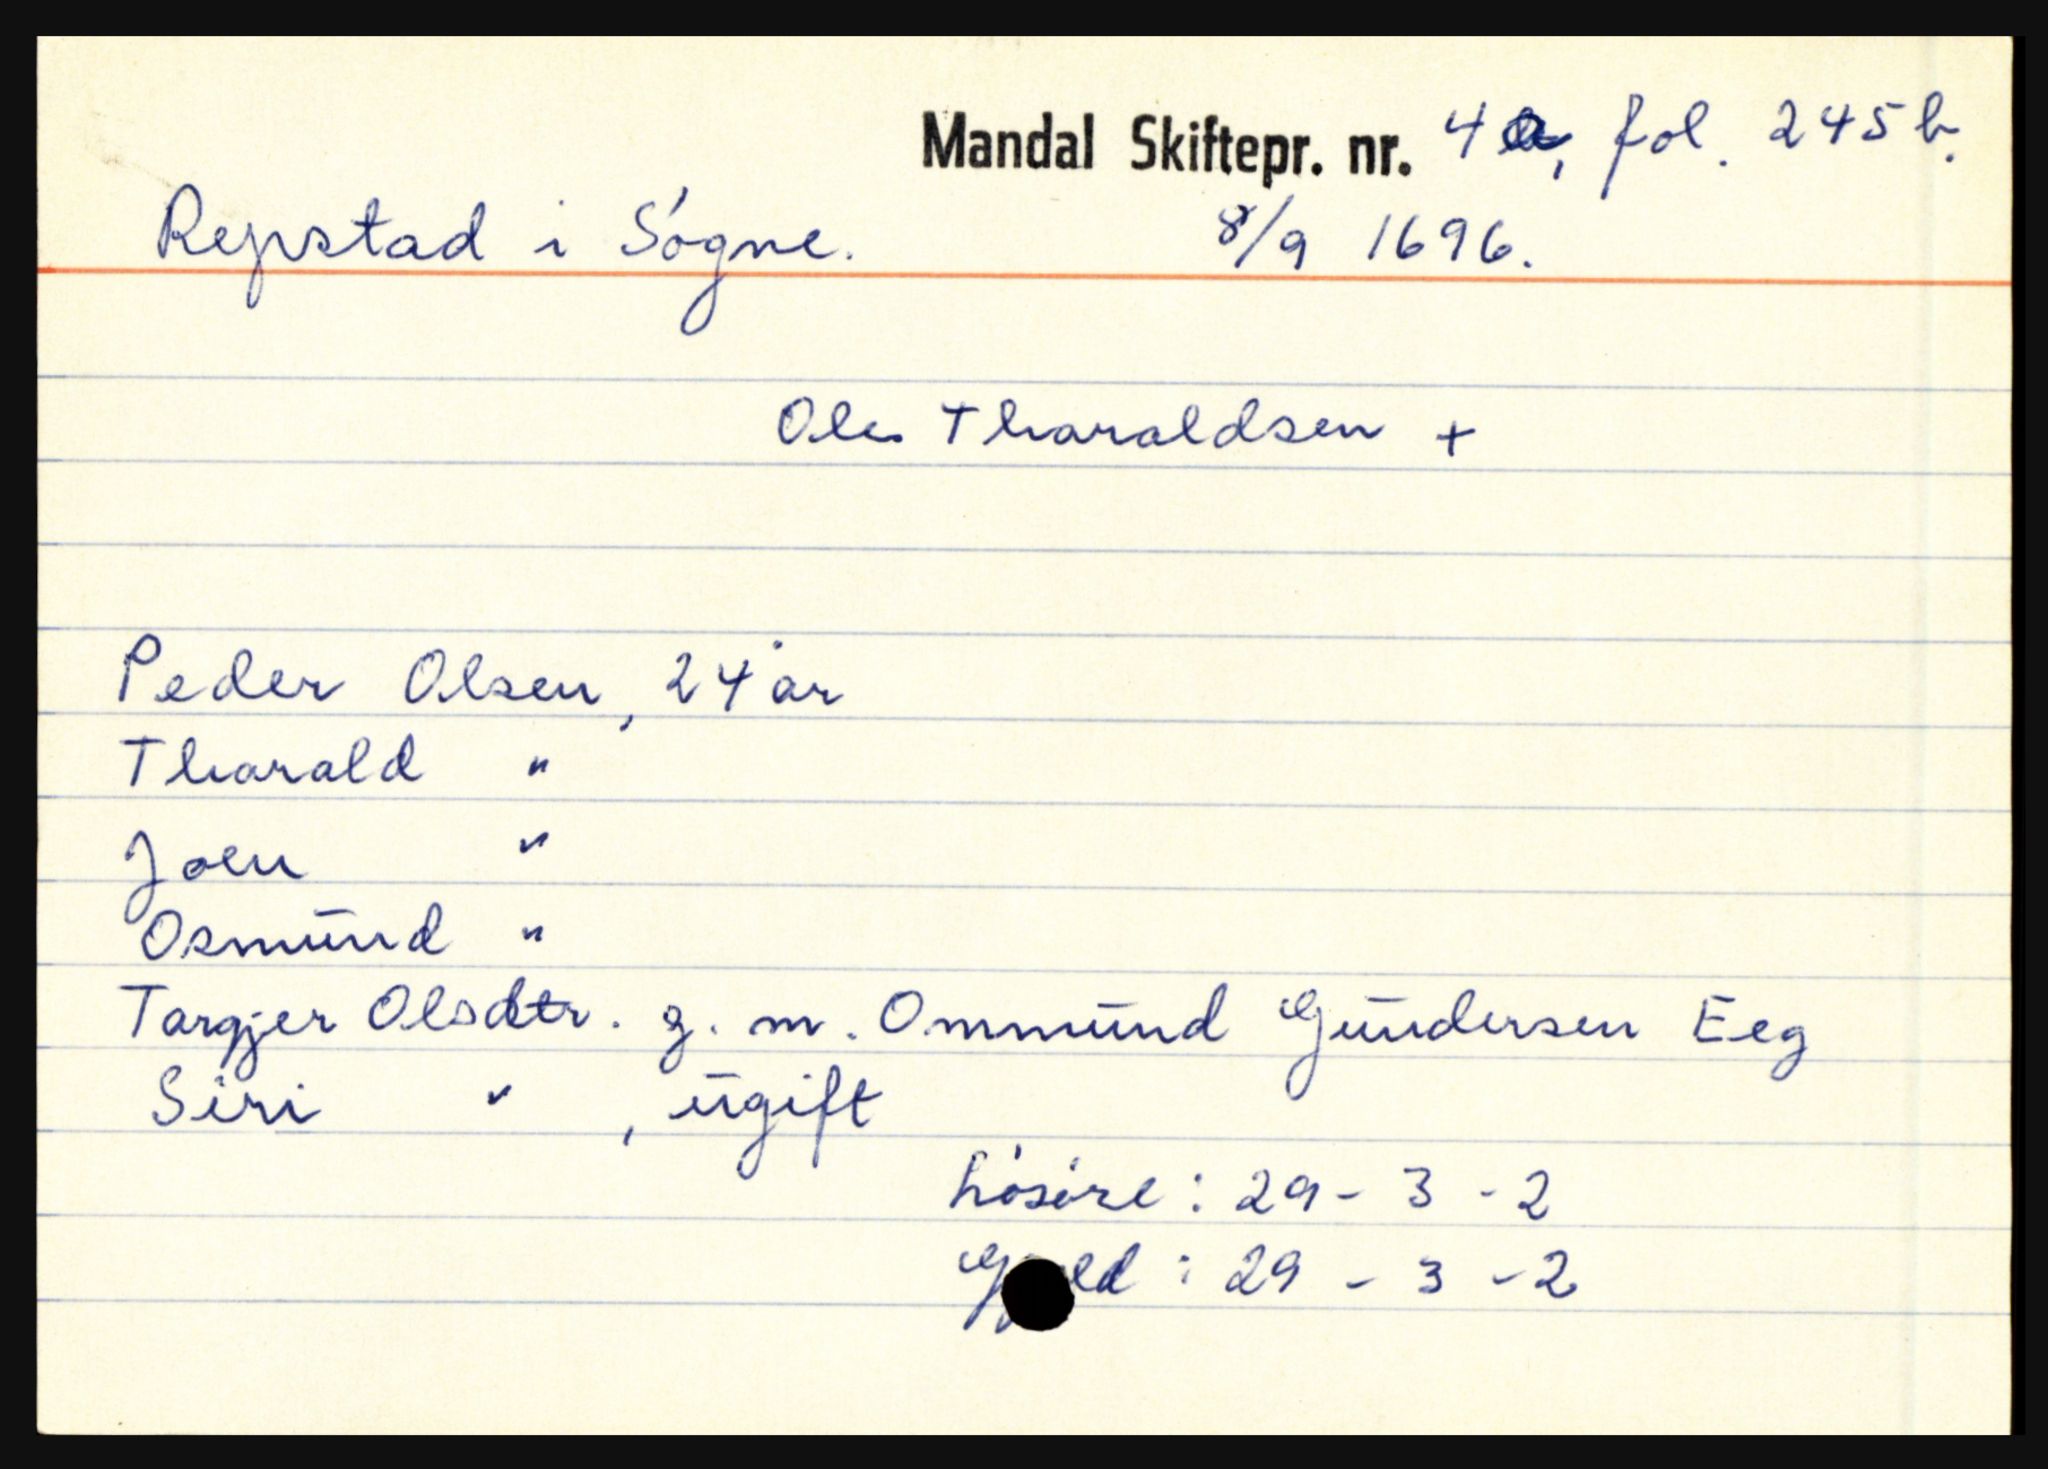 Mandal Skiftepr. nr. 4a, fol. 245b.
Repstad i Søgne. 8/9 1696.
Ole Tharaldsen +
Peder Olsen, 24 år
Tharald "
Joen "
Osmund "
Targjer Olsdtr. g. m. Ommund Gundersen Eeg
Siri " , ugift
Løsøre: 29 - 3 - 2
Gjeld: 29 - 3 - 2